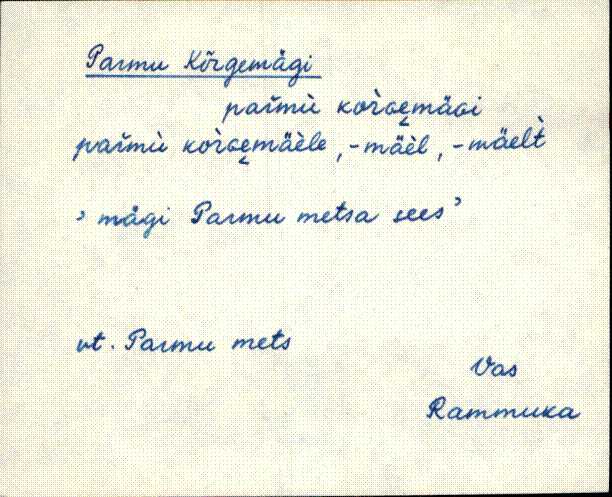 Parmu Kõrgemägi
par̆mù kòrɢe̬mäɢi
par̆mù kòrɢe̬mäèle, -mäèl, -mäelt̀
’ mägi Parmu metsa sees ’
vt. Parmu mets
Vas
Rammuka